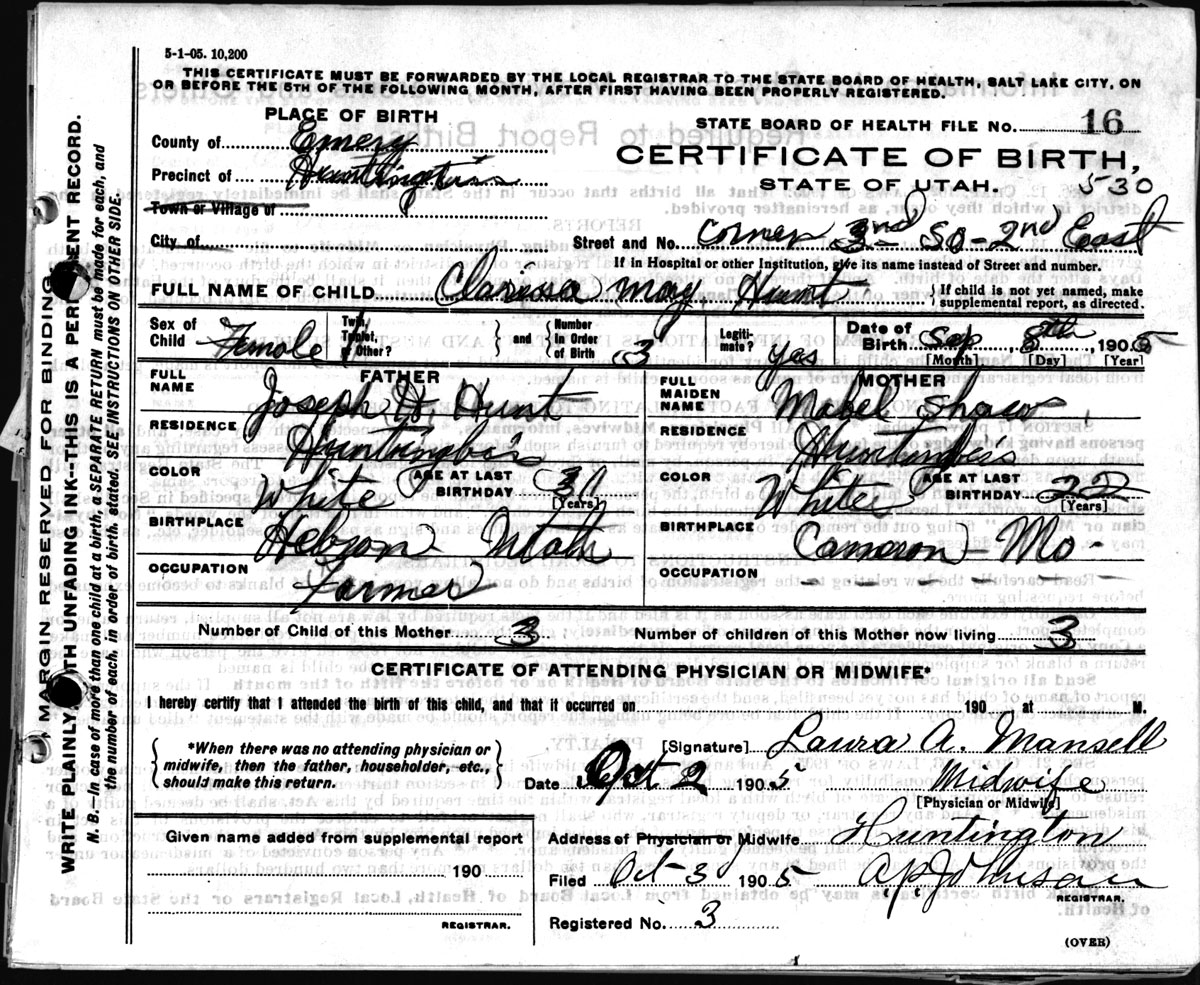 5-1-05. 10,200
THIS CERTIFICATE MUST BE FORWARDED BY THE LOCAL REGISTRAR TO THE STATE BOARD OF HEALTH, SALT LAKE CITY, ON
OR BEFORE THE 5TH OF THE FOLLOWING MONTH, AFTER FIRST HAVING BEEN PROPERLY REGISTERED.
PLACE OF BIRTH
STATE BOARD OF HEALTH FILE NO. 16
County of Emery
CERTIFICATE OF BIRTH,
Precinct of
STATE OF UTAH. 530
Town or Village of
City of
Street and No. Corner 2nd So - 2nd East
If in Hospital or other Institution, give its name instead of Street and number.
FULL NAME OF CHILD Clarissa May Hunt
{If child is not yet named, make
supplemental report, as directed.
Sex of Child Female
Twin, Triplet, or Other?
and
Number In Order of Birth 3
Legitimate? yes
Date of Birth Sep 8th 1905
[Month] [Day] [Year]
FATHER
FULL NAME Joseph H. Hunt
RESIDENCE
COLOR White
AGE AT LAST BIRTHDAY
[Years]
BIRTHPLACE Utah
OCCUPATION Farmer
MOTHER
FULL MAIDEN NAME Mabel Shaw
RESIDENCE
COLOR White
AGE AT LAST BIRTHDAY 22
[Years]
BIRTHPLACE Cameron - Mo -
OCCUPATION - - - -
Number of Child of this Mother 3
Number of children of this Mother now living 3
CERTIFICATE OF ATTENDING PHYSICIAN OR MIDWIFE*
I hereby certify that I attended the birth of this child, and that it occurred on 190 at M.
{*When there was no attending physician or
midwife, then the father, householder, etc.,
should make this return.}
[Signature] Laura A. Mansell
Date Oct 2 1905
Midwife
[Physician or Midwife]
Given name added from supplemental report
190
REGISTRAR.
Address of Physician or Midwife Huntington
Filed Oct 3 1905
REGISTRAR.
Registered No. 3
(OVER)
MARGIN RESERVED FOR BINDING
WRITE PLAINLY WITH UNFADING INK--THIS IS A PERMANENT RECORD.
N. B.—In case of more than one child at a birth, a SEPARATE RETURN must be made for each, and
the number of each, in order of birth, stated SEE INSTRUCTIONS ON OTHER SIDE.